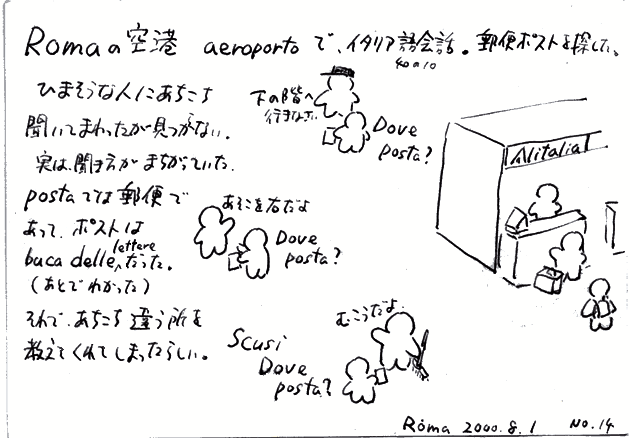 Romaの空港 aeroportoで、イタリア語会話。郵便ポストを探した。
ひまそうな人にあちこち
聞いてまわったが見つからない。
実は、聞き方がまちがっていた。
postaでは郵便で
あって、ポストは
buca delle lettere だった。
(あとでわかった)
それで、あちこち違う所を
教えてくれてしまったらしい。
下の階へ
行きなさい
Dove
posta?
あそこを右だよ
Dove
posta?
むこうだよ
Scusi
Dove
posta?
Alitalia
Roma 2000.8.1 No.14